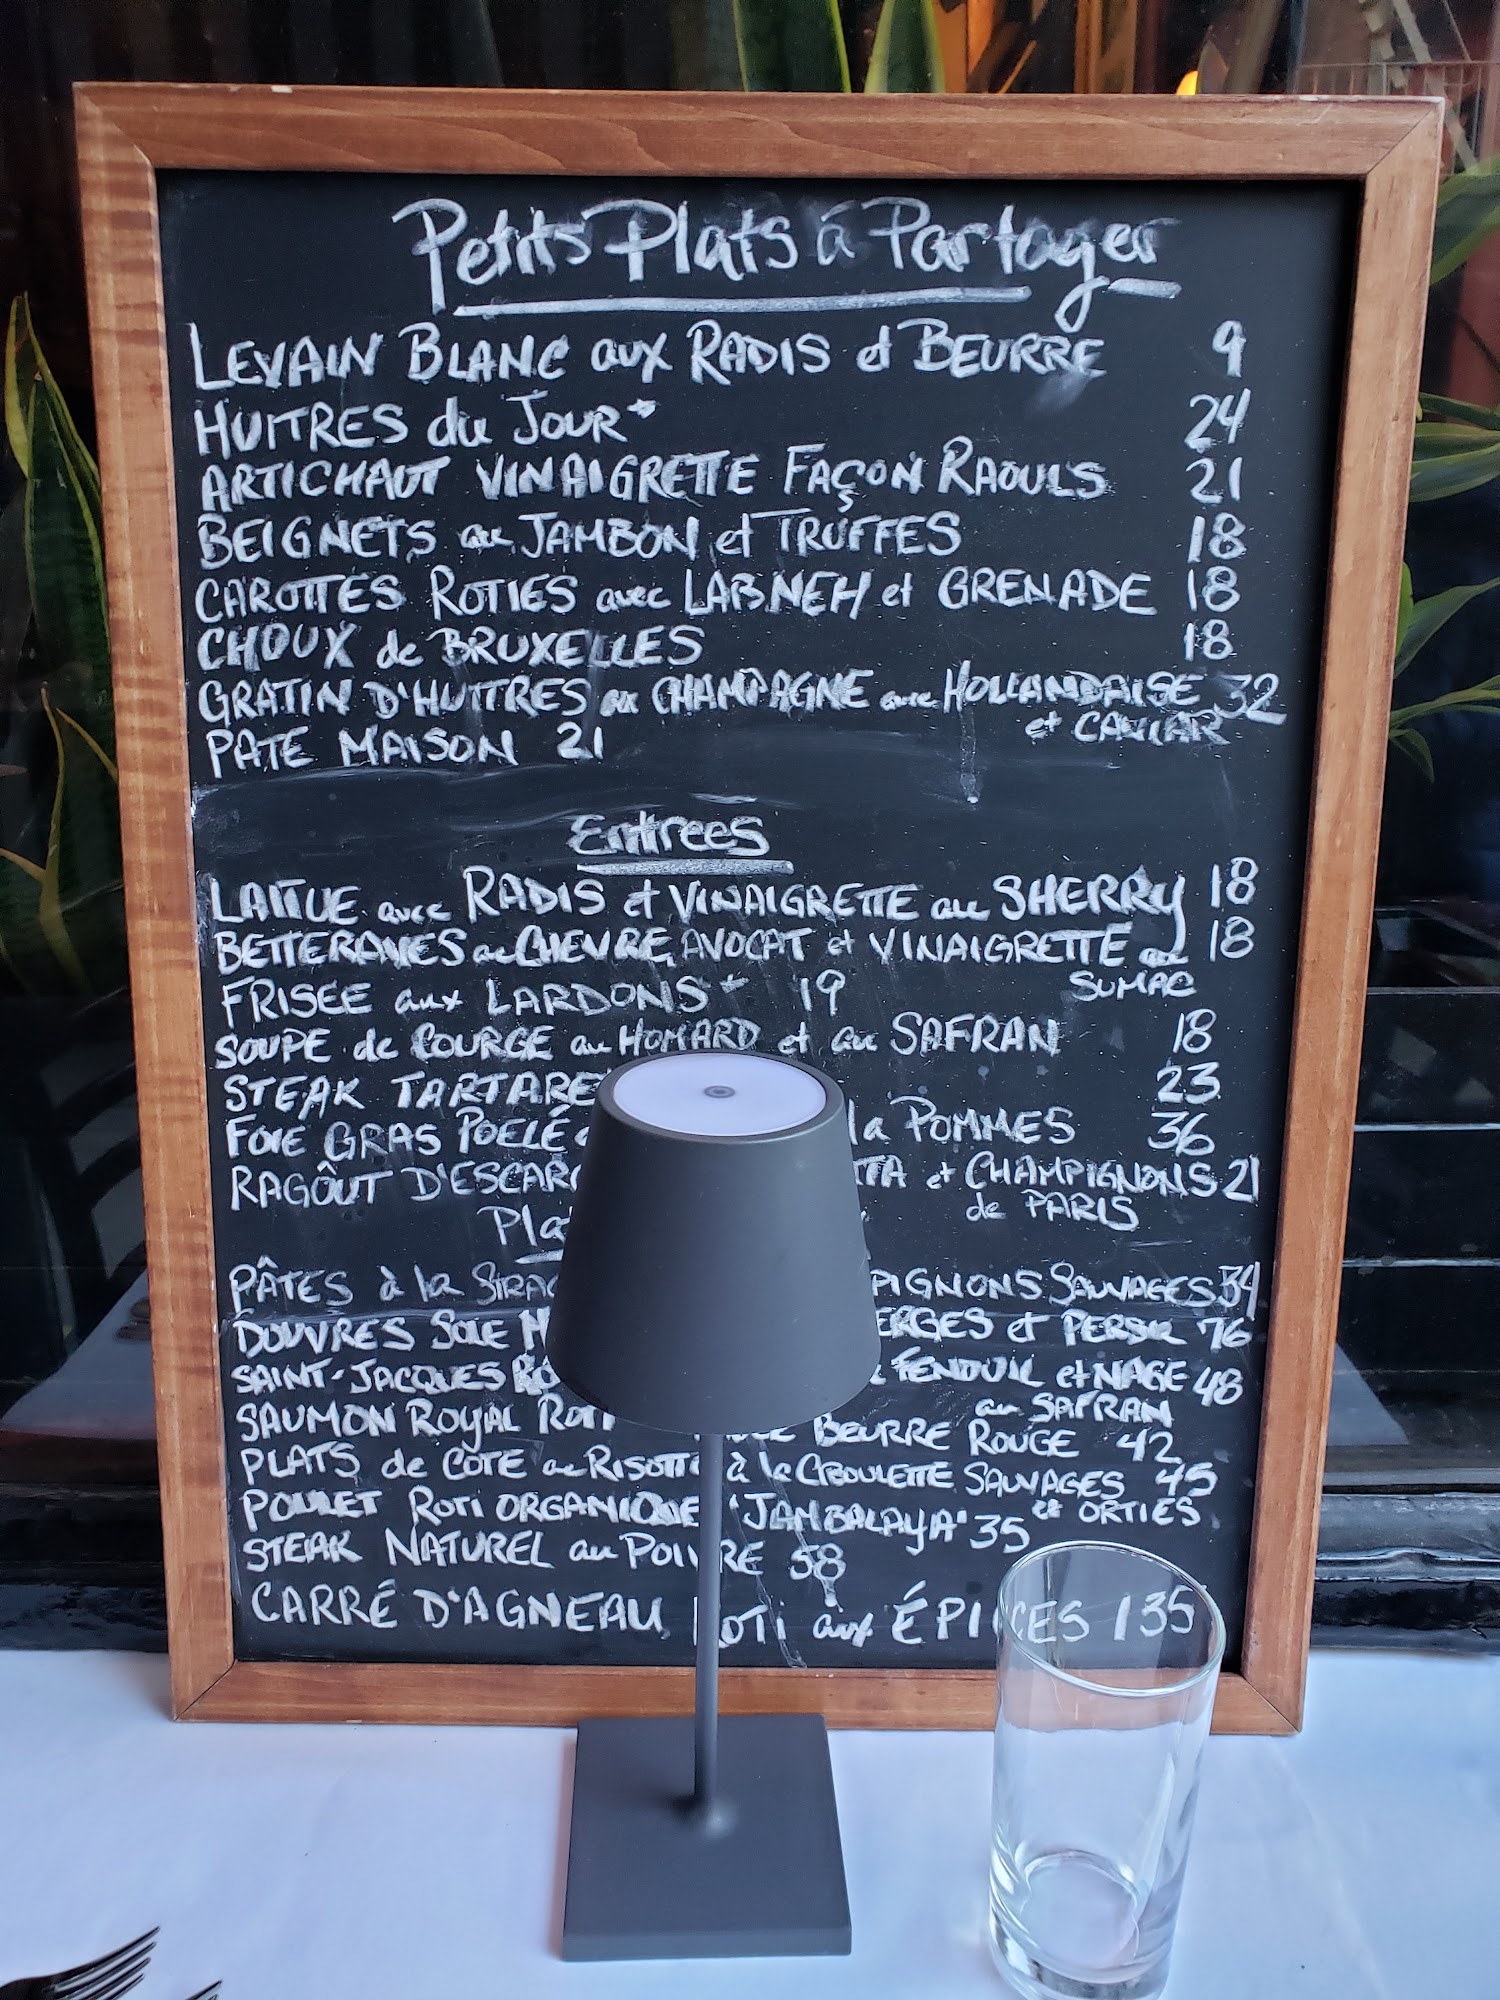 Petits Plats à Partager
LEVAIN BLANC aux RADIS et BEURRE 9
HUITRES du JOUR* 24
ARTICHAUT VINAIGRETTE FAÇON RAOULS 21
BEIGNETS au JAMBON et TRUFFES 18
CAROTTES ROTIES avec LABNEH et GRENADE 18
CHOUX de BRUXELLES 18
GRATIN D'HUITRES au CHAMPAGNE avec HOLLANDAISE 32
et CAVIAR
PATE MAISON 21
Entrees
LAITUE avec RADIS et VINAIGRETTE au SHERRY 18
BETTERAVES au CHEVRE, AVOCAT et VINAIGRETTE au 18
SUMAC
FRISEE aux LARDONS* 19
SOUPE de COURGE au HOMARD et au SAFRAN 18
STEAK TARTARE 23
FOIE GRAS POELÉ la POMMES 36
RAGÔUT D'ESCARG TTA et CHAMPIGNONS 21
de PARIS
Pla
PÂTES à la STRAC PIGNONS SAUVAGES 34
DOUVRES SOLE M ERGES et PERSIL 76
SAINT-JACQUES RO FENOUIL et NAGE 48
au SAFRAN
SAUMON ROYAL ROTI BEURRE ROUGE 42
PLATS de COTE au RISOTTO à la CIBOULETTE SAUVAGES 45
et ORTIES
POULET ROTI ORGANIQUE 'JAMBALAYA' 35
STEAK NATUREL au POIVRE 58
CARRÉ D'AGNEAU ROTI aux ÉPICES 135